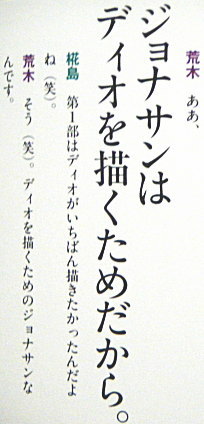 荒木　ああ、
ジョナサンは
ディオを描くためだから。
椛島　第1部はディオがいちばん描きたかったんだよ
ね（笑）。
荒木　そう（笑）。ディオを描くためのジョナサンな
んです。